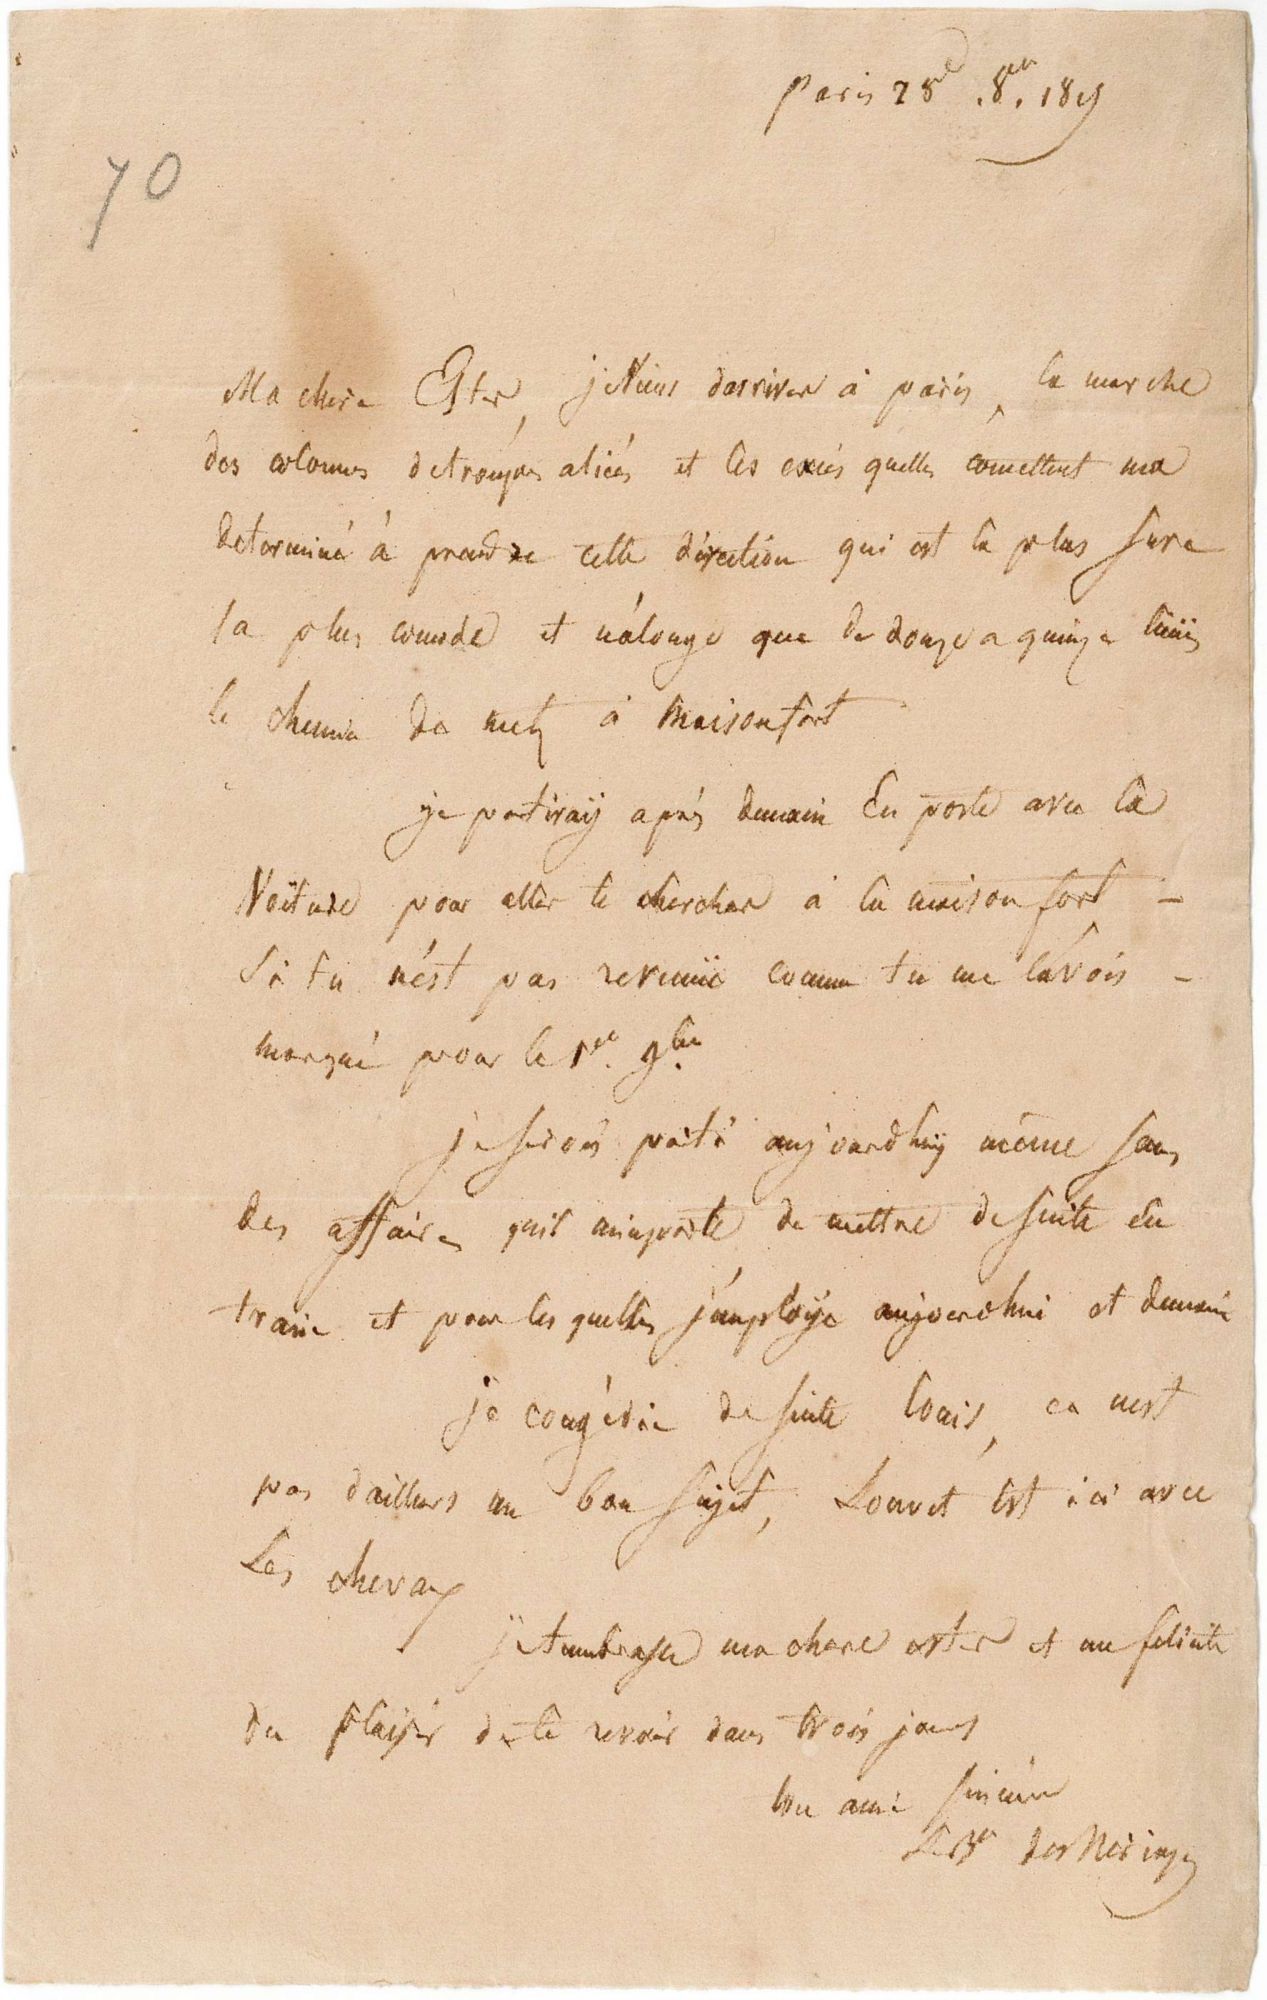 Paris 28 8bre 1815
70
Ma chere Ester, je viens darriver à paris, la marche
des colonnes de troupes aliées et les excés quelles comettent ma
determiné à prendre cette diréction qui est la plus sure
la plus comode et n'alonge que de douze a quinze lieües
le chemin de metz à maisonfort
je partiraÿ aprés demain En poste avec la
Voiture pour aller te chercher à la maison fort –
Si tu n'ést pas revenüe comme tu me l'avois –
marqué pour le 1er 9bre
je serois parti aujourdhuÿ même sans
des affaires quil m'importe de mettre de suite en
train et pour les quelles j'emploÿe aujourdhui et demain
je congédie de suite Louis, ce nest
pas dailleurs un bon sujet, Louvet est ici avec
Les chevaux
je t'embrasse ma chere ester et me felicite
du plaisir de te revoir dans trois jours
ton ami sincère
Le Bn